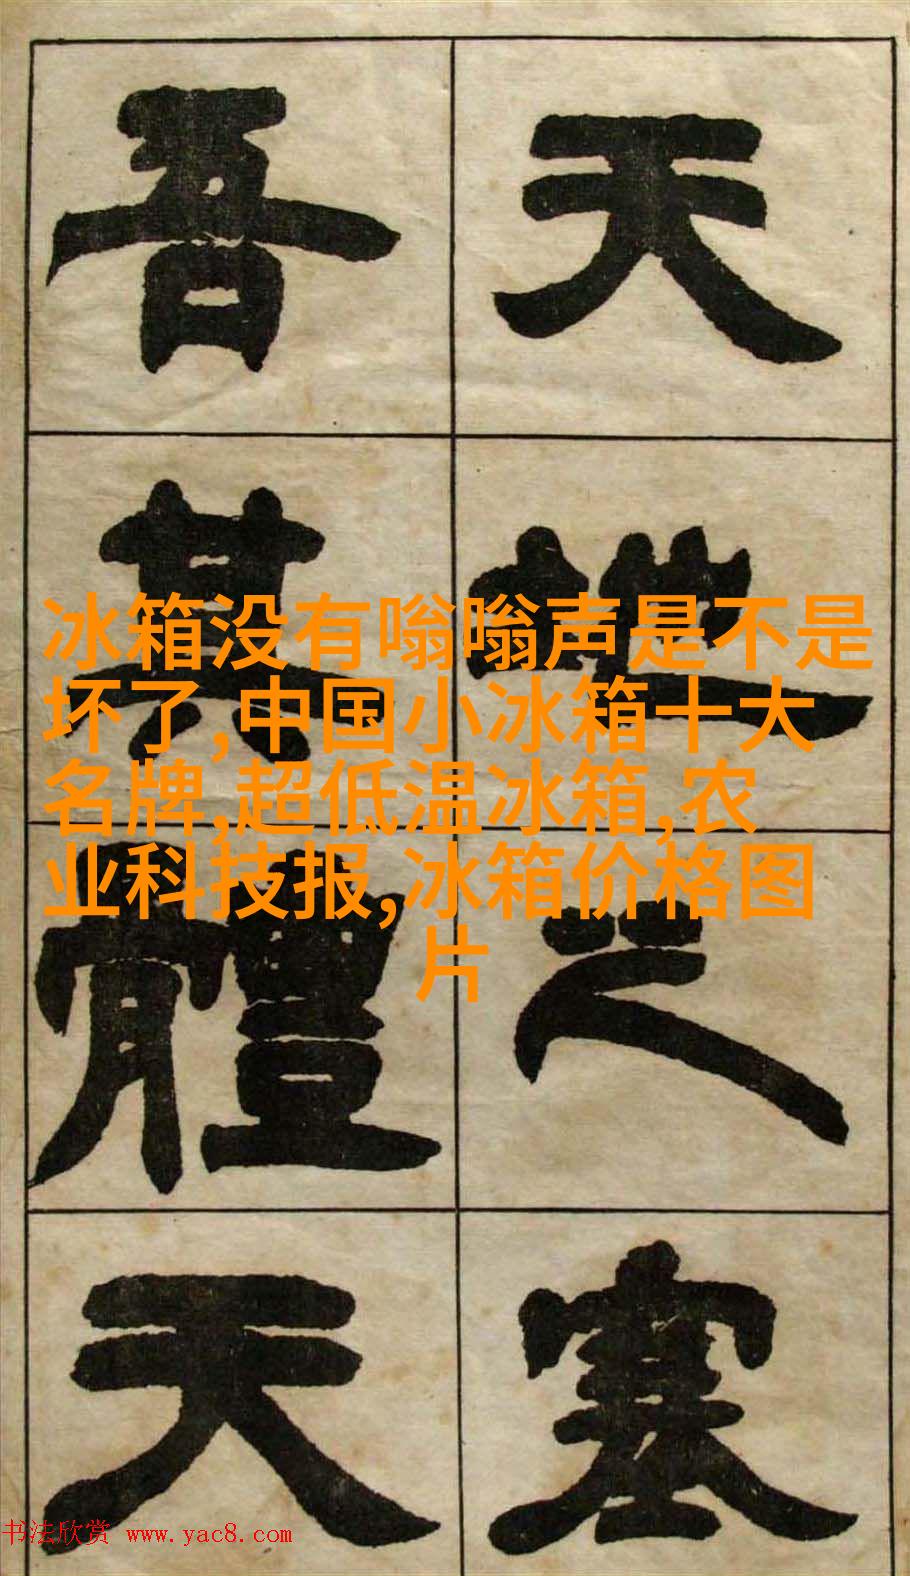 天地之塞
吾其體天
冰箱没有嗡嗡声是不是
坏了,中国小冰箱十大
名牌,超低温冰箱,农
业科技报,冰箱价格图
片
书法欣赏 www.yac8.com